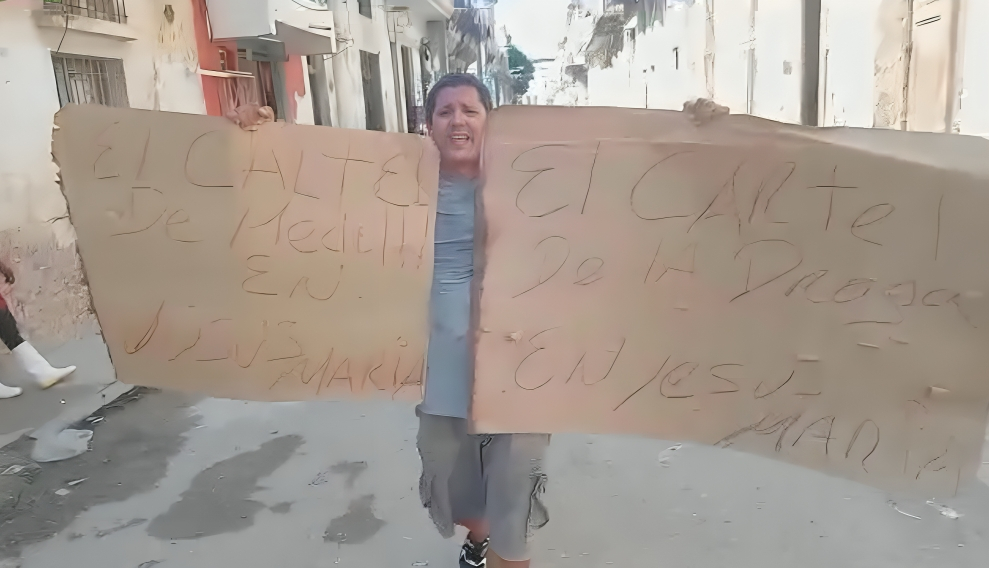 El CALTEl
De Medelll
EN.
JESUS
MARIA
El CARTel
De lA Droga
EN Jesus
MARIA